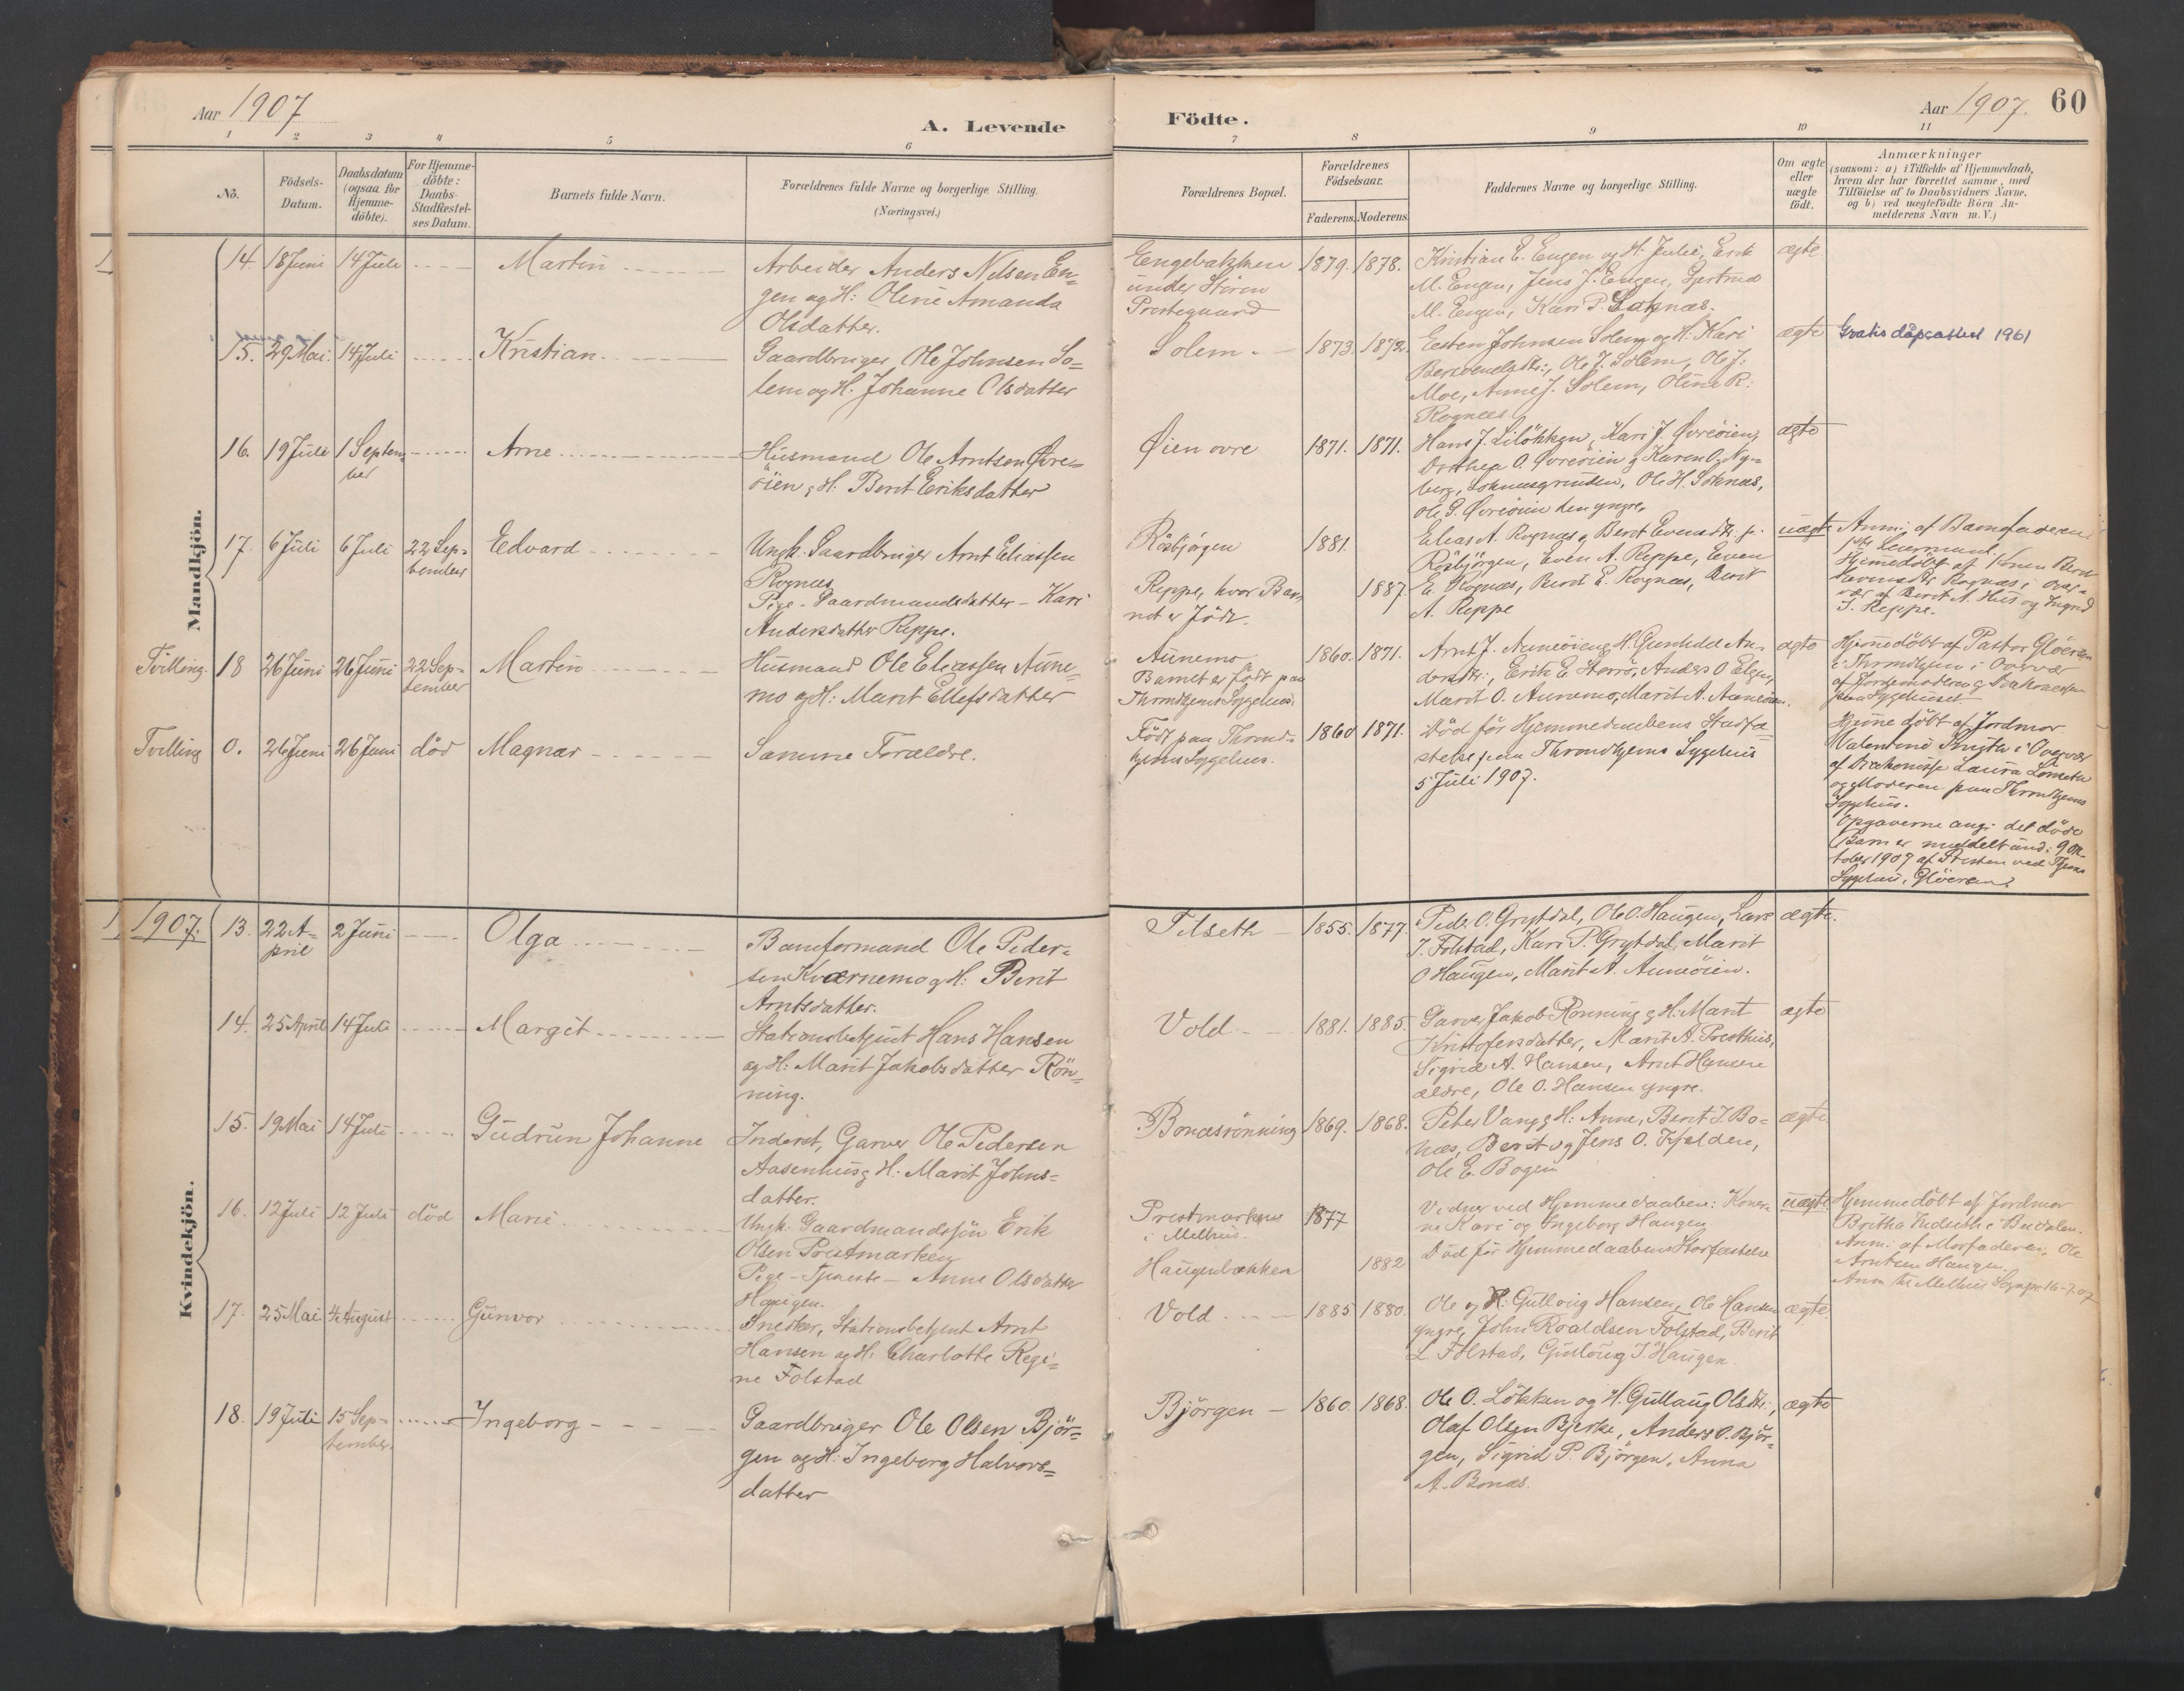 Aar 1907
A. Levende
Födte.
Aar 1907.
60
1 2 3 4 5 6 7 8 9 10 11
No.
Födsels-
Datum.
Daabsdatum
(ogsaa for
Hjemme-
döbte).
For Hjemme-
döbte:
Daabs-
Stadfæstel-
ses Datum.
Barnets fulde Navn.
Forældrenes fulde Navne og borgerlige Stilling.
(Næringsvei.)
Forældrenes Bopæl.
Forældrenes
Födselsaar.
Faderens. Moderens.
Faddernes Navne og borgerlige Stilling.
Om ægte
eller
uægte
födt.
Anmærkninger
(saasom: a) i Tilfælde af Hjemmedaab,
hvem der har forrettet samme, med
Tilföielse af to Daabsvidners Navne,
og b) ved uægtefödte Börn An-
melderens Navn m. V.)
Mandkjön.
14. 18 Juni 14 Juli Martin
Arbeider Anders Nilsen En-
gen og H: Oline Amanda
Olsdatter.
Engebakken
under Stören
Prestegaard
1879. 1878.
Kristian E. Engen og H. Julie, Erik
M. Engen, Jens J. Engen, Gjertrud
M. Engen, Kari P. Soknæs.
ægte
15. 29 Mai 14 Juli Kristian.
Gaardbruger Ole Johnsen So-
lem og H. Johanne Olsdatter
Solem.
1873. 1872.
Esten Johnsen Solem og H: Kari
Ole J. Solem, Ole J.
Moe, Anne J. Solem, Oline R.
Rognæs
ægte
Gratis dåpsattest 1961
16. 19 Juli 1 Septem-
ber
Arne
Husmand Ole Arntsen Övre-
öien, H. Berit Eriksdatter
Øien övre
1871. 1871.
Hans J. Lilökken, Kari J. Øvreöien,
Dorthea O. Øvreöien & Karen O. Ny-
berg, Ole H. Soknæs,
Ole S. Øvreöien den yngre.
ægte
17. 6 Juli 6 Juli 22 Sep-
tember
Edvard
Ungk. Gaardbruger Arnt Eliassen
Rognæs
Pige - Gaardmandsdatter - Kari
Andersdatter Reppe.
Rösbjörgen
Reppe, hvor Bar-
net er Födt.
1881.
1887
Elias A. Rognæs & Berit Evensdtr. p.
Rösbjörgen, Even A. Reppe, Even
E. Rognæs, Berit E. Rognæs, Berit
A. Reppe
uægte
Anm. af Barnefaderen
Hjemmedöbt af Konen Berit
Evensdtr. Rognæs i Over-
vær af Berit A. Hus og Ingrid
J. Reppe.
Tvilling. 18 26 Juni 26 Juni 22 Sep-
tember
Martin
Husmand Ole Eliassen Aune-
mo og H: Marit Ellefsdatter
Aunemo
Barnet er födt paa
Throndhjems Sygehus.
1860. 1871.
Arnt J. Auneöien & H. Gunhild An-
dersdtr., Erik E. Storrö, Anders O. Elgen,
Marit O. Aunemo, Marit A. Auneöien.
ægte
Hjemmedöbt af Pastor Glöersen
i Throndhjem i Overvær
af Jordemoderen & Diakonissen
paa Sygehuset
Tvilling 0. 26 Juni 26 Juni död Magnar
Samme Forældre.
Födt paa Thrond-
hjems Sygehus.
1860 1871.
Död för Hjemmedaabens Stadfæ-
stelse paa Throndhjems Sygehus
5 Juli 1907.
Hjemmedöbt af Jordmor
Valentine i Overvær
af Diakonisse Laura
og Moderen paa Throndhjems
Sygehus.
Opgaverne ang. det döde
Barn er meddelt und. 9 Ok-
tober 1907 af Presten ved Thjems
Sygehus, Glöersen.
1907.
Kvindekjön.
13. 22 A-
pril
2 Juni Olga
Baneformand Ole Peder-
sen Kværnemo & H: Berit
Arntsdatter.
Tilseth
1855. 1877.
Peder O. Grytdal, Ole O. Haugen, Lars
J. Folstad, Kari P. Grytdal, Marit
O Haugen, Marit A. Auneöien.
ægte.
14. 25 April 14 Juli Margit
Stationsbetjent Hans Hansen
og H: Marit Jakobsdatter Rön-
ning.
Vold
1881. 1885.
Garver Jakob Rönning & H: Marit
Kristofersdatter, Marit A. Presthus,
Sigrid A. Hansen, Arnt Hansen
ældre, Ole O. Hansen yngre.
ægte
15. 19 Mai 14 Juli Gudrun Johanne
Inderst, Garver Ole Pedersen
Aasenhus & H. Marit Johns-
datter.
Bonæsrönning
1869. 1868.
Peter Vang & H: Anne, Berit J. Bo-
næs, Berit og Jens O. Kjelden,
Ole E. Bogen
ægte
16. 12 Juli 12 Juli död Marie
Ungk. Gaardmandssön Erik
Olsen Prestmarken
Pige - Tjeneste - Anne Olsdatter
Haugen.
Prestmarken
i Melhus.
Haugenbakken
1877
1882
Vidner ved Hjemmedaaben: Koner-
ne Kari og Ingeborg Haugen
Död för Hjemmedaabens Stadfæstelse
uægte
Hjemmedöbt af Jordmor
Britha i Budalen.
Anm: af Morfaderen, Ole
Arntsen Haugen.
Anm. til Melhus Sognepr. 16-7-07
17. 25 Mai 4 August Gunvor
Snedker, Stationsbetjent Arnt
Hansen og H: Charlotte Regi-
ne Folstad
Vold
1885 1880.
Ole og H: Gullaug Hansen, Ole Hansen
yngre, John Roaldsen Folstad, Berit
L. Folstad, Gullaug J. Haugen.
ægte.
18. 19 Juli 15 Sep-
tember.
Ingeborg
Gaardbruger Ole Olsen Björ-
gen og H: Ingeborg Halvors-
datter
Björgen
1860. 1868.
Ole O. Lökken og H. Gullaug Olsdtr.,
Olaf Olsen Bjerke, Anders O. Björ-
gen, Sigrid P. Björgen, Anna
A. Bonæs.
ægte